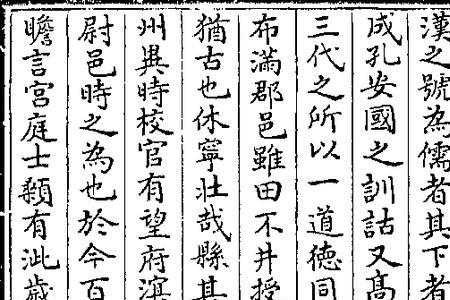 漢之號為儒者其下者
成孔安國之訓詁又髙
三代之所以一道德同
布滿郡邑雖田不井授
猶古也休寧壯哉縣其
州異時校官有望府溟
尉邑時之為也於今百
瞻言宮庭士類有泚歳